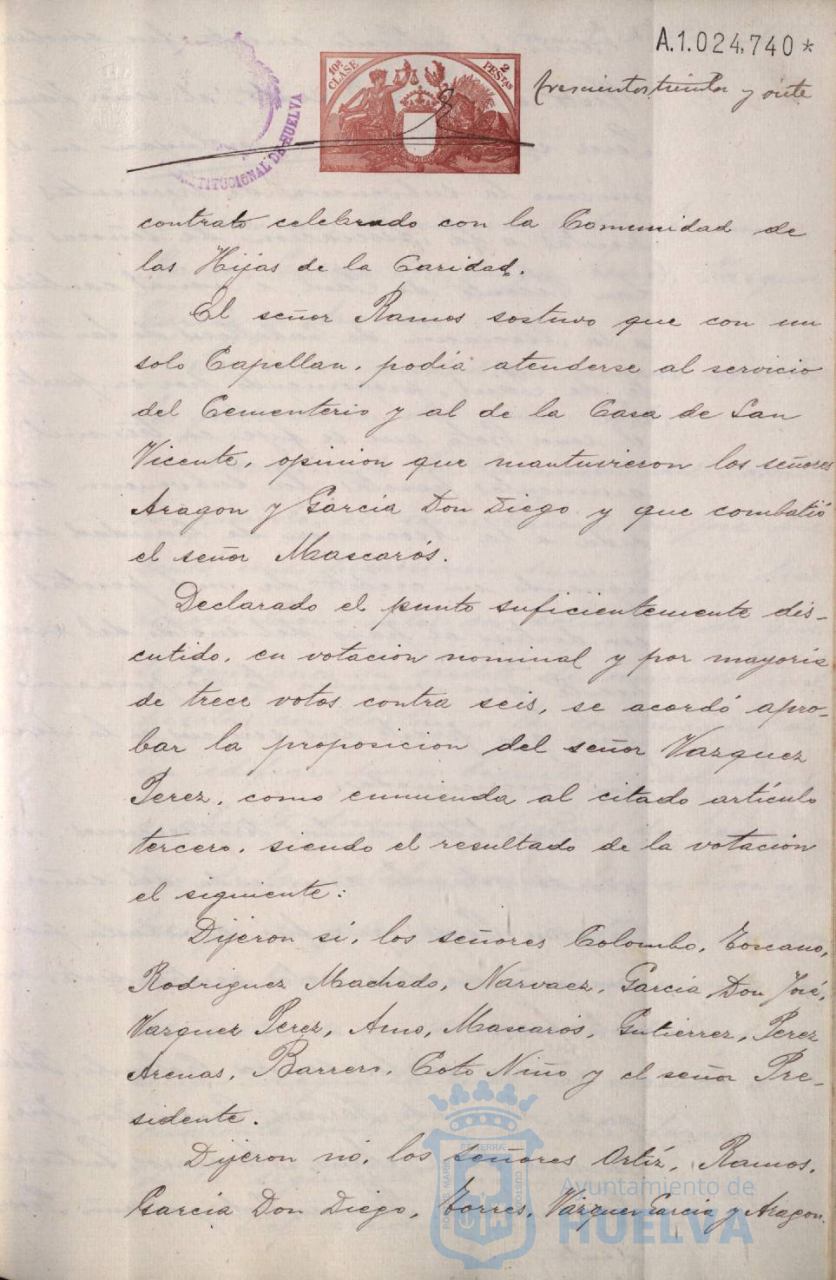 A.1.024,740*
10ª CLASE
2 PESTAS
trescientos treinta y siete
TITUCIONAL DE HUELVA
contrato celebrado con la Comunidad de
las Hijas de la Caridad.
El señor Ramos sostuvo que con un
solo Capellan, podia atenderse al servicio
del Cementerio y al de la Casa de San
Vicente, opinion que mantuvieron los señores
Aragon y Garcia Don Diego y que combatió
el señor Mascarós.
Declarado el punto suficientemente dis-
cutido, en votacion nominal y por mayoria
de trece votos contra seis, se acordó apro-
bar la proposicion del señor Vazquez
Perez, como enmienda al citado artículo
tercero, siendo el resultado de la votación
el siguiente:
Dijeron sí, los señores Colombo, Toscano,
Rodriguez Machado, Narvaez, Garcia Don José,
Vazquez Perez, Amo, Mascarós, Gutierrez, Perez
Arenas, Barrero, Coto Niño y el señor Pre-
sidente.
Dijeron nó, los señores Ortíz, Ramos,
Garcia Don Diego, Torres, Vázquez Garcia y Aragon.
Ayuntamiento de
HUELVA